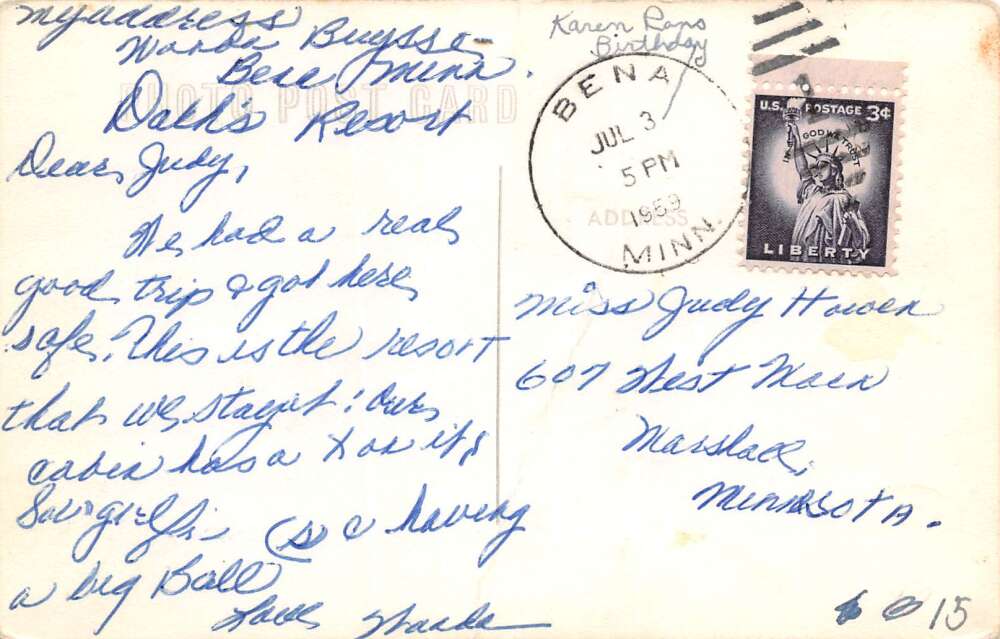 my address
Wanda Buysse
Bena Minn.
PHOTO POST CARD
Resort
Dear Judy,
We had a real
good trip & got here
safe. This is the resort
that we stay at! Our
cabin has a X on it,
having
a big Ball
Love Wanda
Karen
Birthday
BENA
JUL 3
5 PM
1959
MINN.
U.S. POSTAGE 3¢
IN GOD WE TRUST
LIBERTY
ADDRESS
Miss Judy Howen
607 West Main
Marshall,
Minnesota.
15